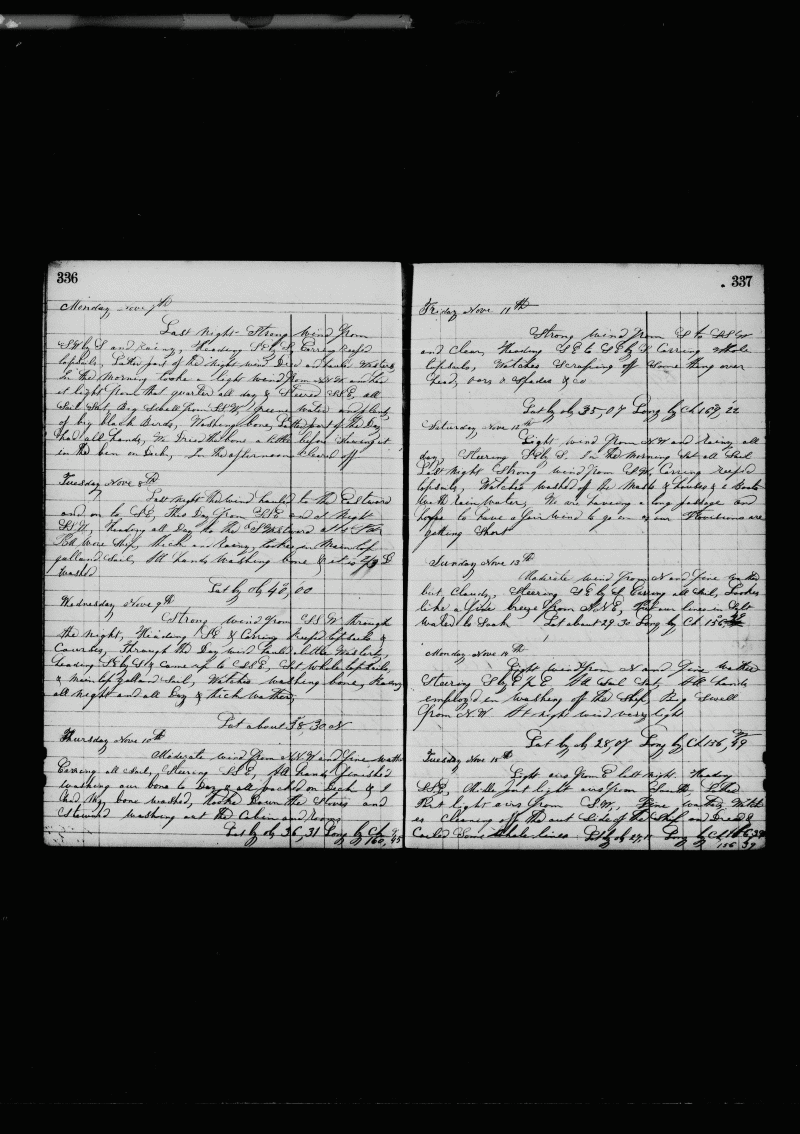 336
Monday Nove 7th
Last Night Strong wind from
SW by S and Rainy, Heading SE by S Carring reefd
topsails, Latter part of the Night wind Died and hauld Westerly
In the Morning tooke a light wind from NNW and had
it light from that quarter all day & Steered SSE, all
Sail Set, Big Swell from SW, greene water and lots
of big black Birds, Washing bone, Latter part of the Day
had all hands, We Dried the bone a little before Stowing it
in the ben on Deck, In the afternoon cleared off
Tuesday Nove 8th
Last Night the wind hauled to the Eastward
and on to SE, this Day from SSE and at Night
SSW, Heading all Day to the SWestward at 4
P.M. Wore Ship, thick and Rainy, tooke in Maintop
galland Sail, All hands Washing bone &
washed
Lat by ob 40,00
Wednesday Nove 9th
Strong wind from SSW through
the Night, Heading SE & Carring Reefd topsails &
Courses, Through the Day wind hauled a little Westerly,
heading SE by S & came up to SSE, Set Whole topsails,
& Main top galland Sail, Watches washing bone, Rainy
all Night and all Day & thick wather
Lat about 38,30 N
Thursday Nove 10th
Moderate wind from NNW and fine wather
Carring all Sail, Steering SSE, All hands finished
washing our bone to Day & all packed on Deck & I
had My bone washed, tooke Down the Stoves and
Steward washing out the Cabin and Rooms
Lat by ob 36,31 Long by Ch 160,45
337
Friday Nove 11th
Strong wind from S to SSW
and Clear, Heading SE to SE by S Carring Whole
topsails, Watches Scraping off Some thing over
head, oars & Spades & co
Lat by ob 35,07 Long by Ch 159,22
Saturday Nove 12th
Light wind from NW and Rainy all
day, Steering SE by S. In the Morning Set all Sail
Last Night Strong wind from SW, Carring Reefed
topsails, Watches washed off the Masts & houses & Boats
with Rain Water. We are having a long passage and
hope to have a fair wind to go in as our provisions are
getting Short
Sunday Nove 13th
Moderate wind from N and fine wather
but Cloudy, Steering SE by S Carring all Sail, Lookes
like a fine breeze from NNE, Put our lines in Salt
water to Soak Lat about 29 30 Long by Ch 156,
Monday Nove 14th
Light wind from N and fine Wather
Steering S by E & E All Sail Set, All hands
employed in washing off the Ship, Big Swell
from N.W. At night wind very light
Lat by ob 28,07 Long by Ch 156,49
Tuesday Nove 15th
Light airs from E last night. Heading
SSE, Middle part light airs from South, Latter
Part light airs from S.W., Fine wather, Watch
es Cleaning off the out Side of the Ship and Dried &
Coiled Some Whale lines Lat by ob 27,11 Long by Ch 156,39
156 39